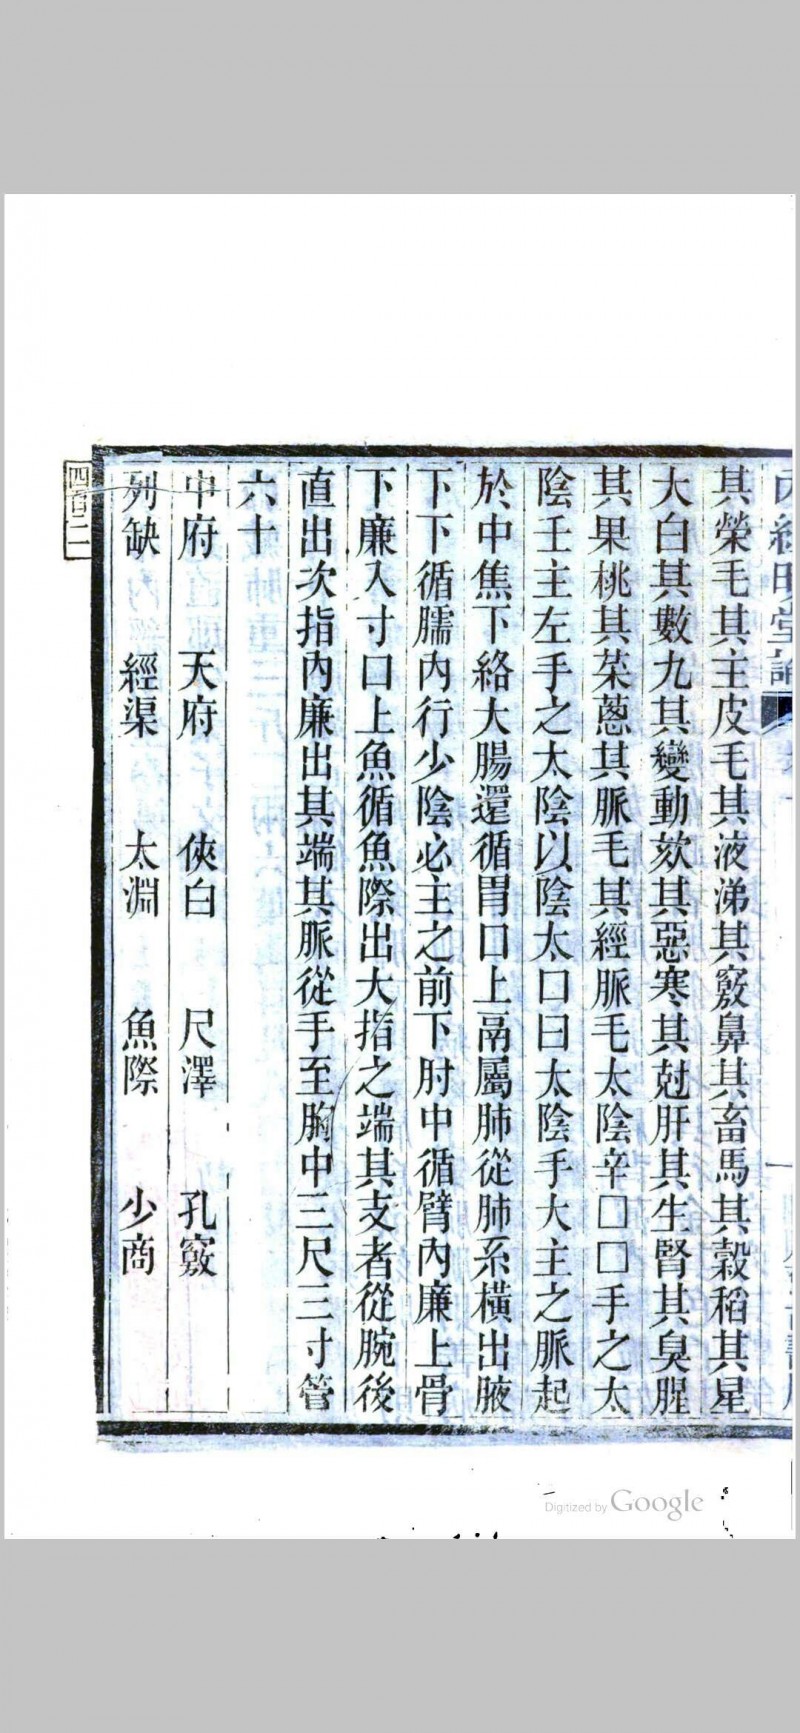 內經明堂
其榮毛其主皮毛其液涕其竅鼻其畜馬其穀稻其星
大白其數九其變動欬其惡寒其尅肝其生腎其臭腥
其果桃其菜蔥其脈毛其經脈毛太陰辛□□手之太
陰壬主左手之太陰以陰太口曰太陰手大主之脈起
於中焦下絡大腸還循胃口上鬲屬肺從肺系橫出腋
下下循臑內行少陰必主之前下肘中循臂內廉上骨
下廉入寸口上魚循魚際出大指之端其支者從腕後
直出次指內廉出其端其脈從手至胸中三尺三寸管
六十
中府 天府 俠白 尺澤 孔竅
列缺 經渠 太淵 魚際 少商
四百二
Digitized by Google